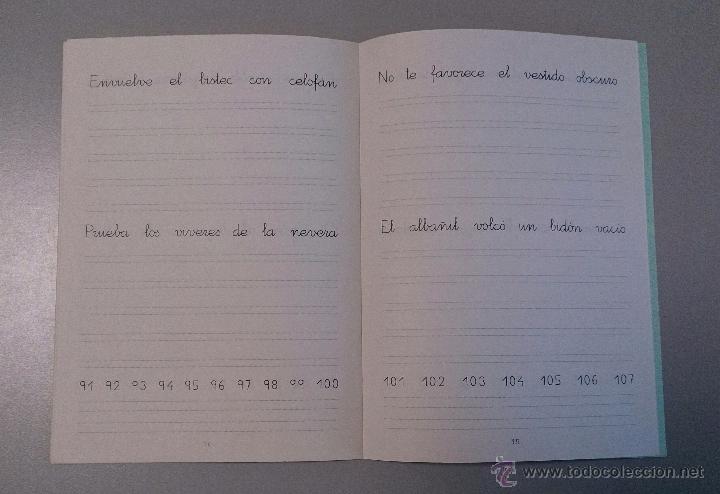 Envuelve el bistec con celofán
Prueba los víveres de la nevera
91 92 93 94 95 96 97 98 99 100
No te favorece el vestido obscuro
El albañil volcó un bidón vacío
101 102 103 104 105 106 107
15
www.todocoleccion.net